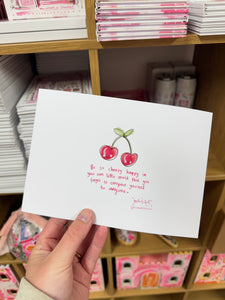 Be so cherry happy in
your own little world that you
forget to compare yourself
to anyone.